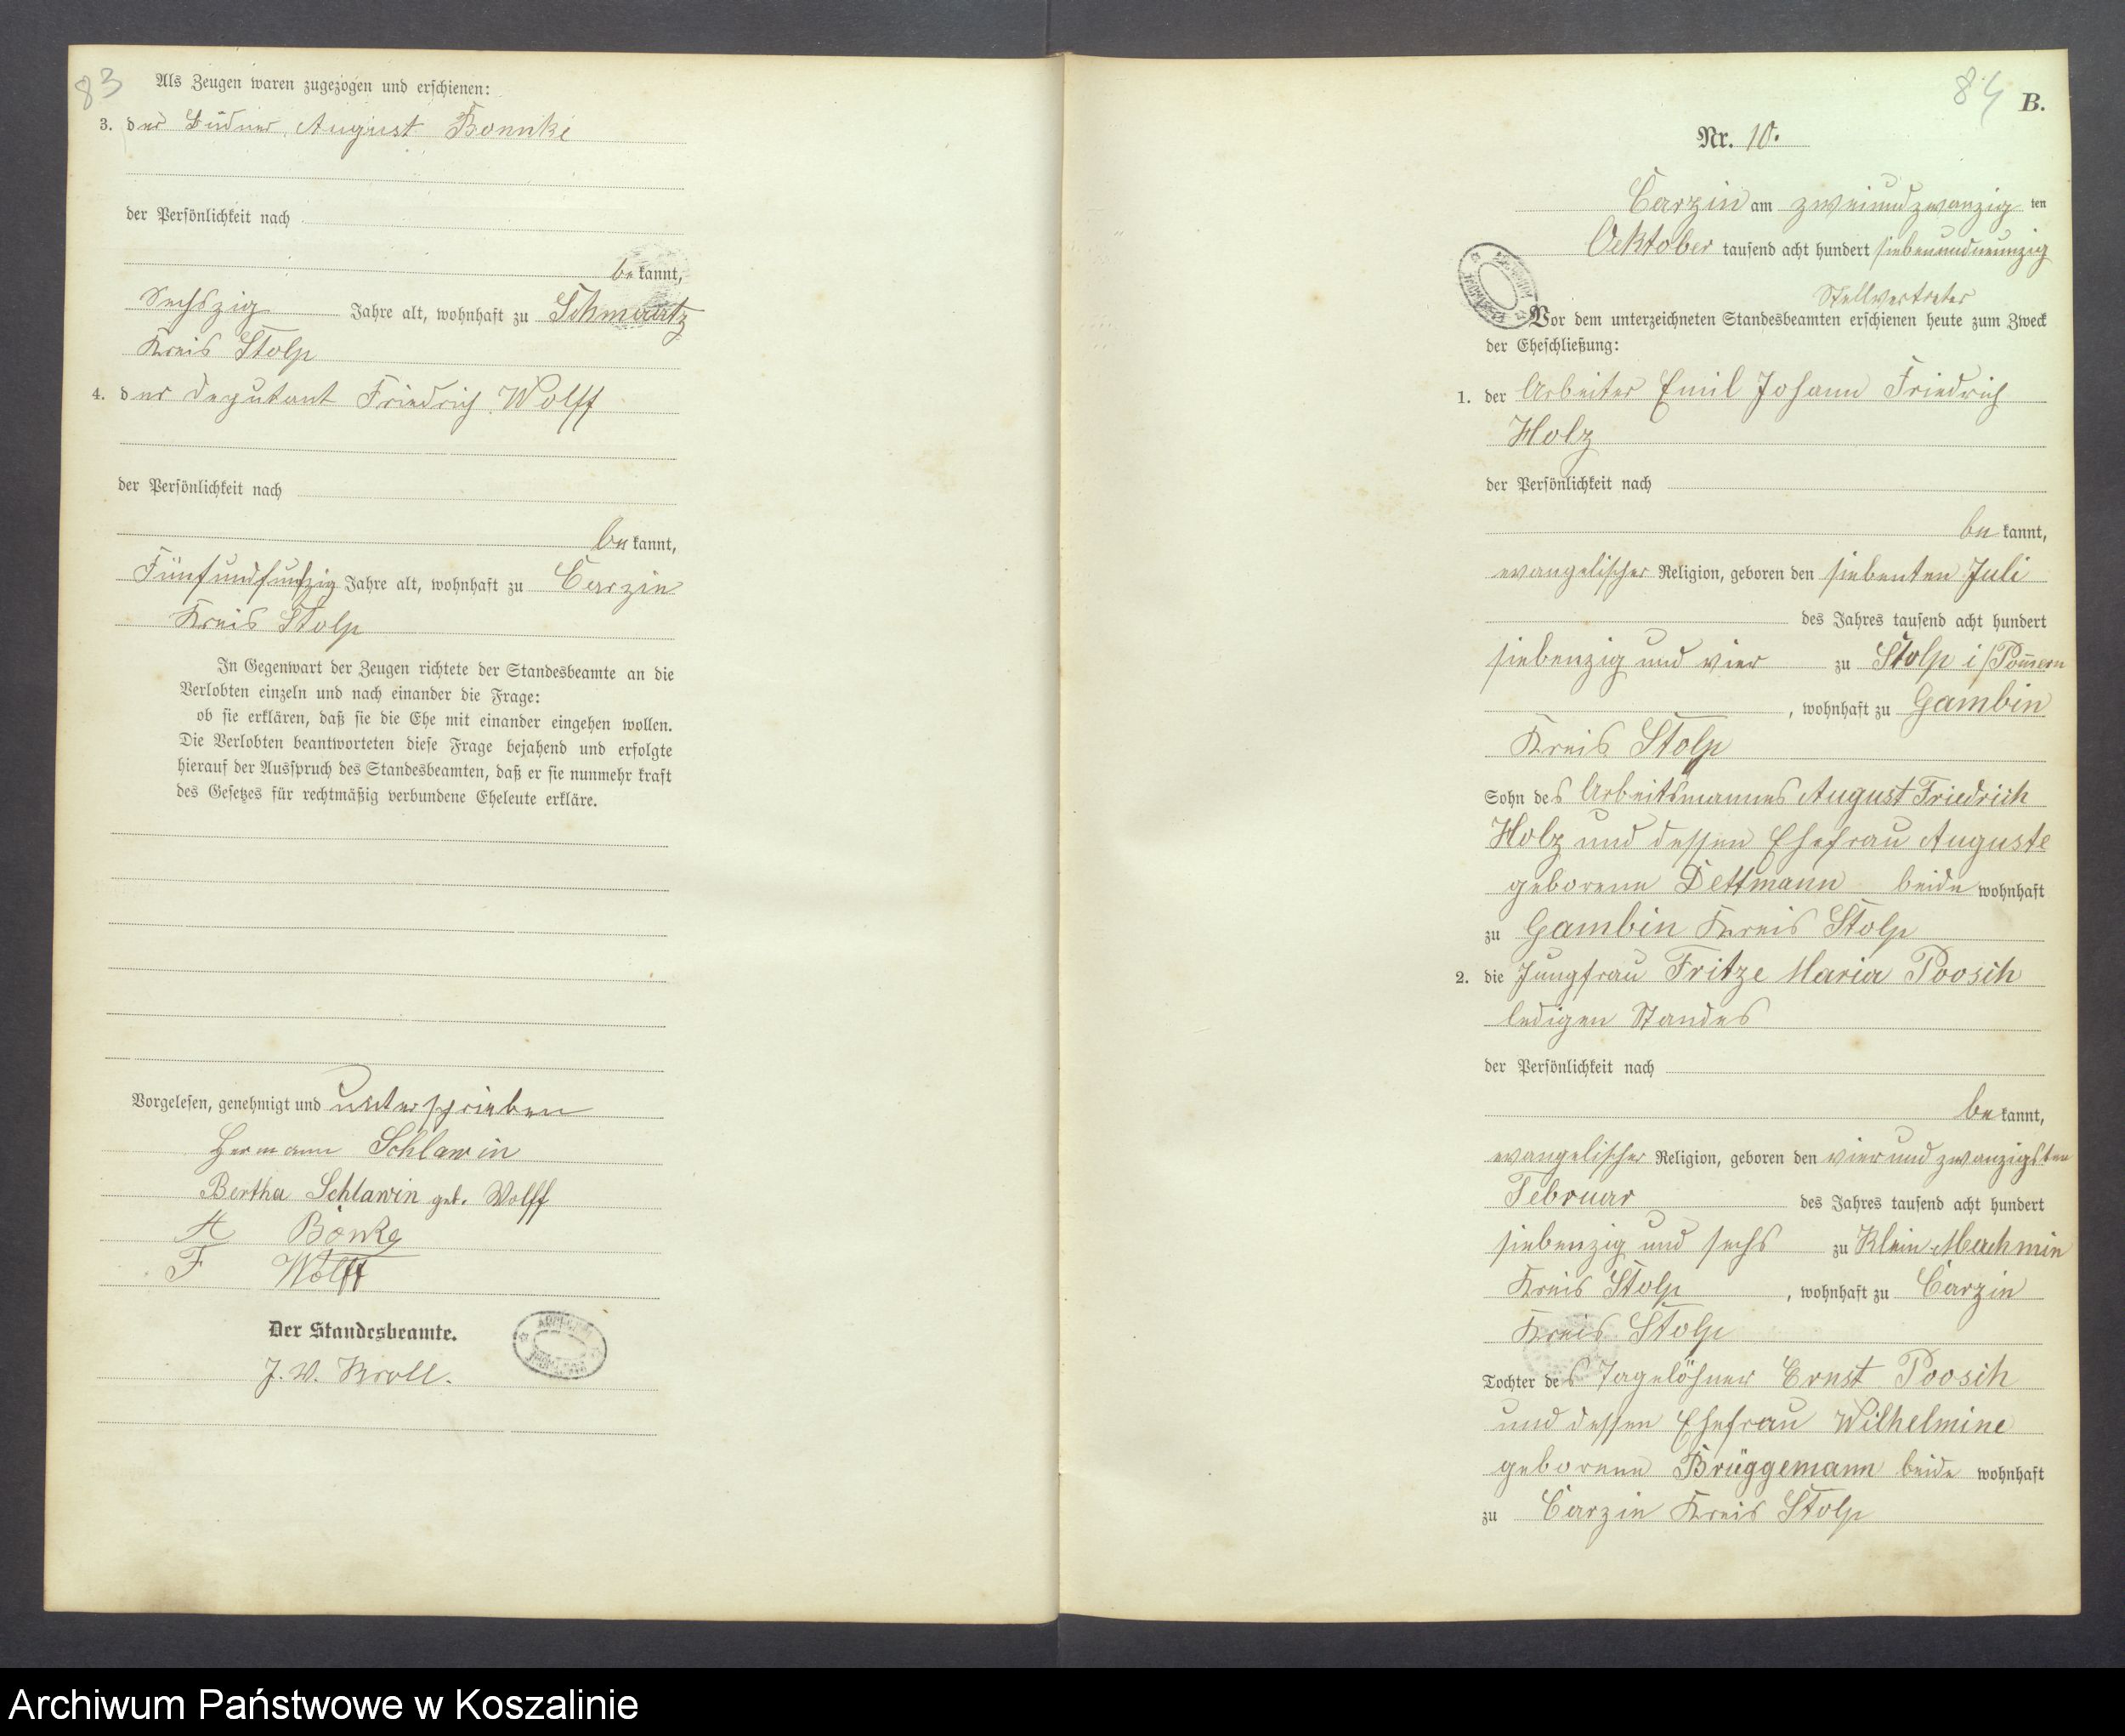 83
Als Zeugen waren zugezogen und erschienen:
3. der Büdner August Bonnke
der Persönlichkeit nach
bekannt,
Sechszig Jahre alt, wohnhaft zu Schmaatz
Kreis Stolp
4. der Deputant Friedrich Wolff
der Persönlichkeit nach
bekannt,
Fünfundfunfzig Jahre alt, wohnhaft zu Carzin
Kreis Stolp
In Gegenwart der Zeugen richtete der Standesbeamte an die
Verlobten einzeln und nach einander die Frage:
ob sie erklären, daß sie die Ehe mit einander eingehen wollen.
Die Verlobten beantworteten diese Frage bejahend und erfolgte
hierauf der Ausspruch des Standesbeamten, daß er sie nunmehr kraft
des Gesetzes für rechtmäßig verbundene Eheleute erkläre.
Vorgelesen, genehmigt und unterschrieben
Hermann Schlawin
Bertha Schlawin geb. Wolff
A Bönke
F Wolff
Der Standesbeamte.
J. V. Kroll.
84
B.
Nr. 10.
Carzin am zweiundzwanzig ten
Oektober tausend acht hundert siebenundneunzig
Stellvertreter
Vor dem unterzeichneten Standesbeamten erschienen heute zum Zweck
der Eheschließung:
1. der Arbeiter Emil Johann Friedrich
Holz
der Persönlichkeit nach
bekannt,
evangelischer Religion, geboren den siebenten Juli
des Jahres tausend acht hundert
siebenzig und vier zu Stolp i/Pom̅ern
, wohnhaft zu Gambin
Kreis Stolp
Sohn des Arbeitsmannes August Friedrich
Holz und dessen Ehefrau Auguste
geborene Dettmann beide wohnhaft
zu Gambin Kreis Stolp
2. die Jungfrau Fritze Maria Poosch
ledigen Standes
der Persönlichkeit nach
bekannt,
evangelischer Religion, geboren den vierundzwanzigsten
Februar des Jahres tausend acht hundert
siebenzig und sechs zu Klein Machmin
Kreis Stolp , wohnhaft zu Carzin
Kreis Stolp
Tochter des Tagelöhner Ernst Poosch
und dessen Ehefrau Wilhelmine
geborene Brüggemann beide wohnhaft
zu Carzin Kreis Stolp
Archiwum Państwowe w Koszalinie